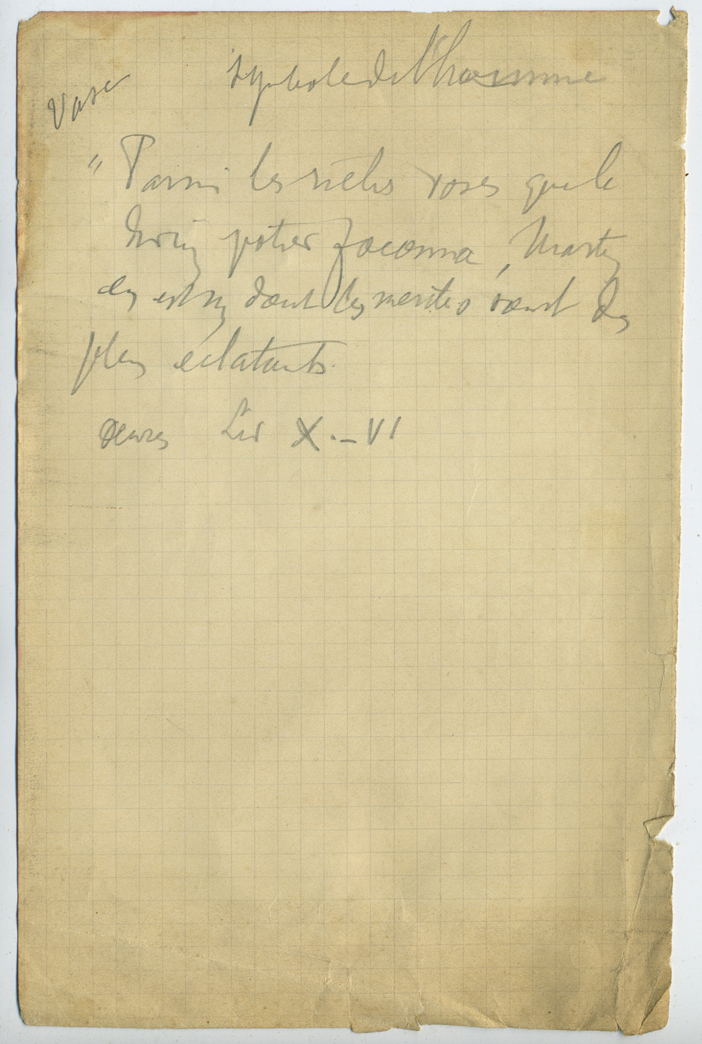 Vase
symbole de l'homme
" Parmi les riches vases que le
divin potier façonna, Martin
en est un dont les mérites sont des
plus éclatants.
Liv X. – VI